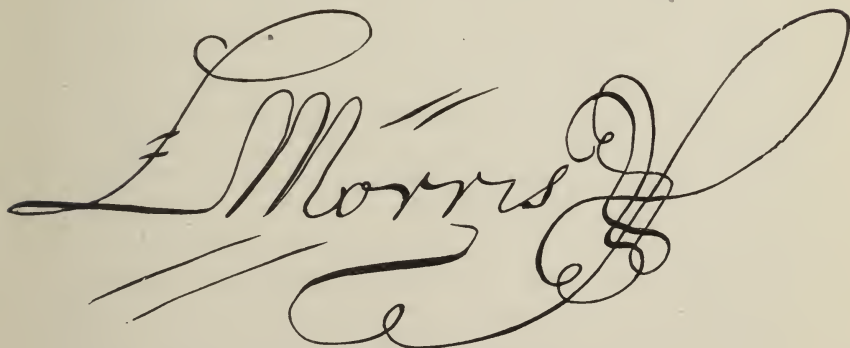 L Morris